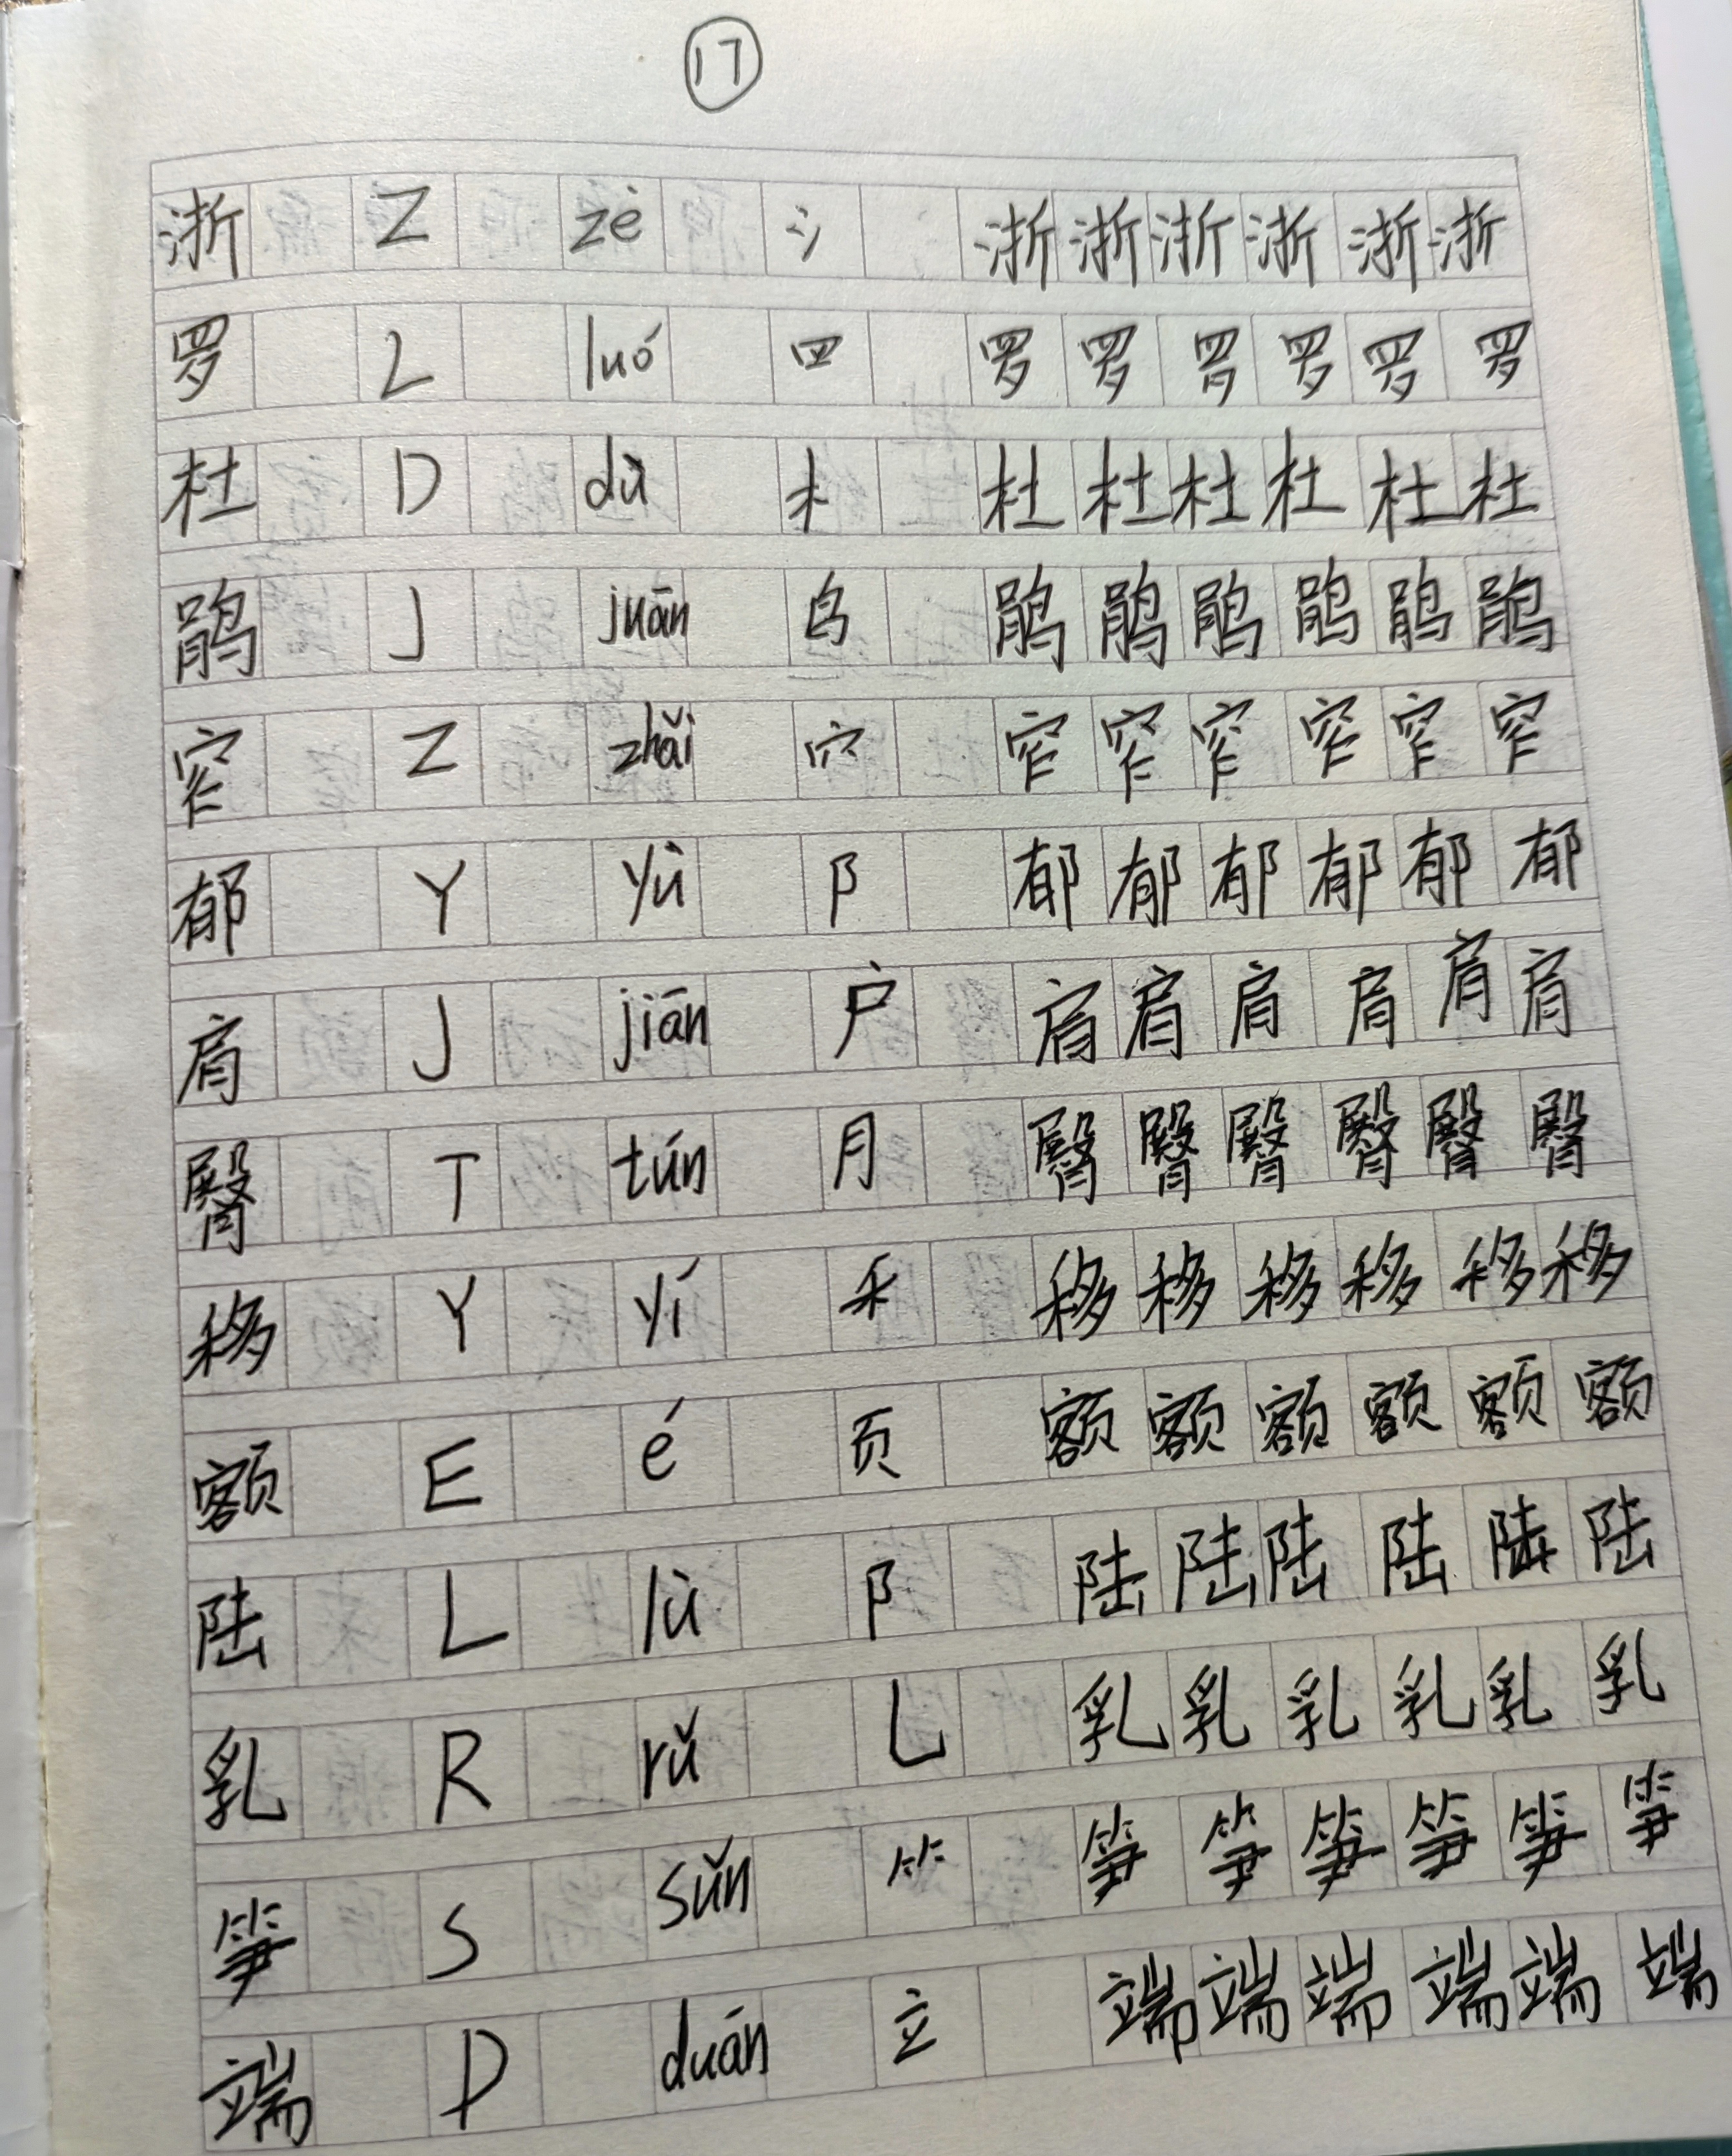 17
浙 Z zè 氵 浙 浙 浙 浙 浙 浙
罗 L luó 罒 罗 罗 罗 罗 罗 罗
杜 D dù 木 杜 杜 杜 杜 杜 杜
鹃 J juān 鸟 鹃 鹃 鹃 鹃 鹃 鹃
窄 Z zhǎi 穴 窄 窄 窄 窄 窄 窄
郁 Y yù 阝 郁 郁 郁 郁 郁 郁
肩 J jiān 户 肩 肩 肩 肩 肩 肩
臀 T tún 月 臀 臀 臀 臀 臀 臀
移 Y yí 禾 移 移 移 移 移 移
额 E é 页 额 额 额 额 额 额
陆 L lù 阝 陆 陆 陆 陆 陆 陆
乳 R rǔ 乚 乳 乳 乳 乳 乳 乳
笋 S sǔn ⺮ 笋 笋 笋 笋 笋 笋
端 D duán 立 端 端 端 端 端 端